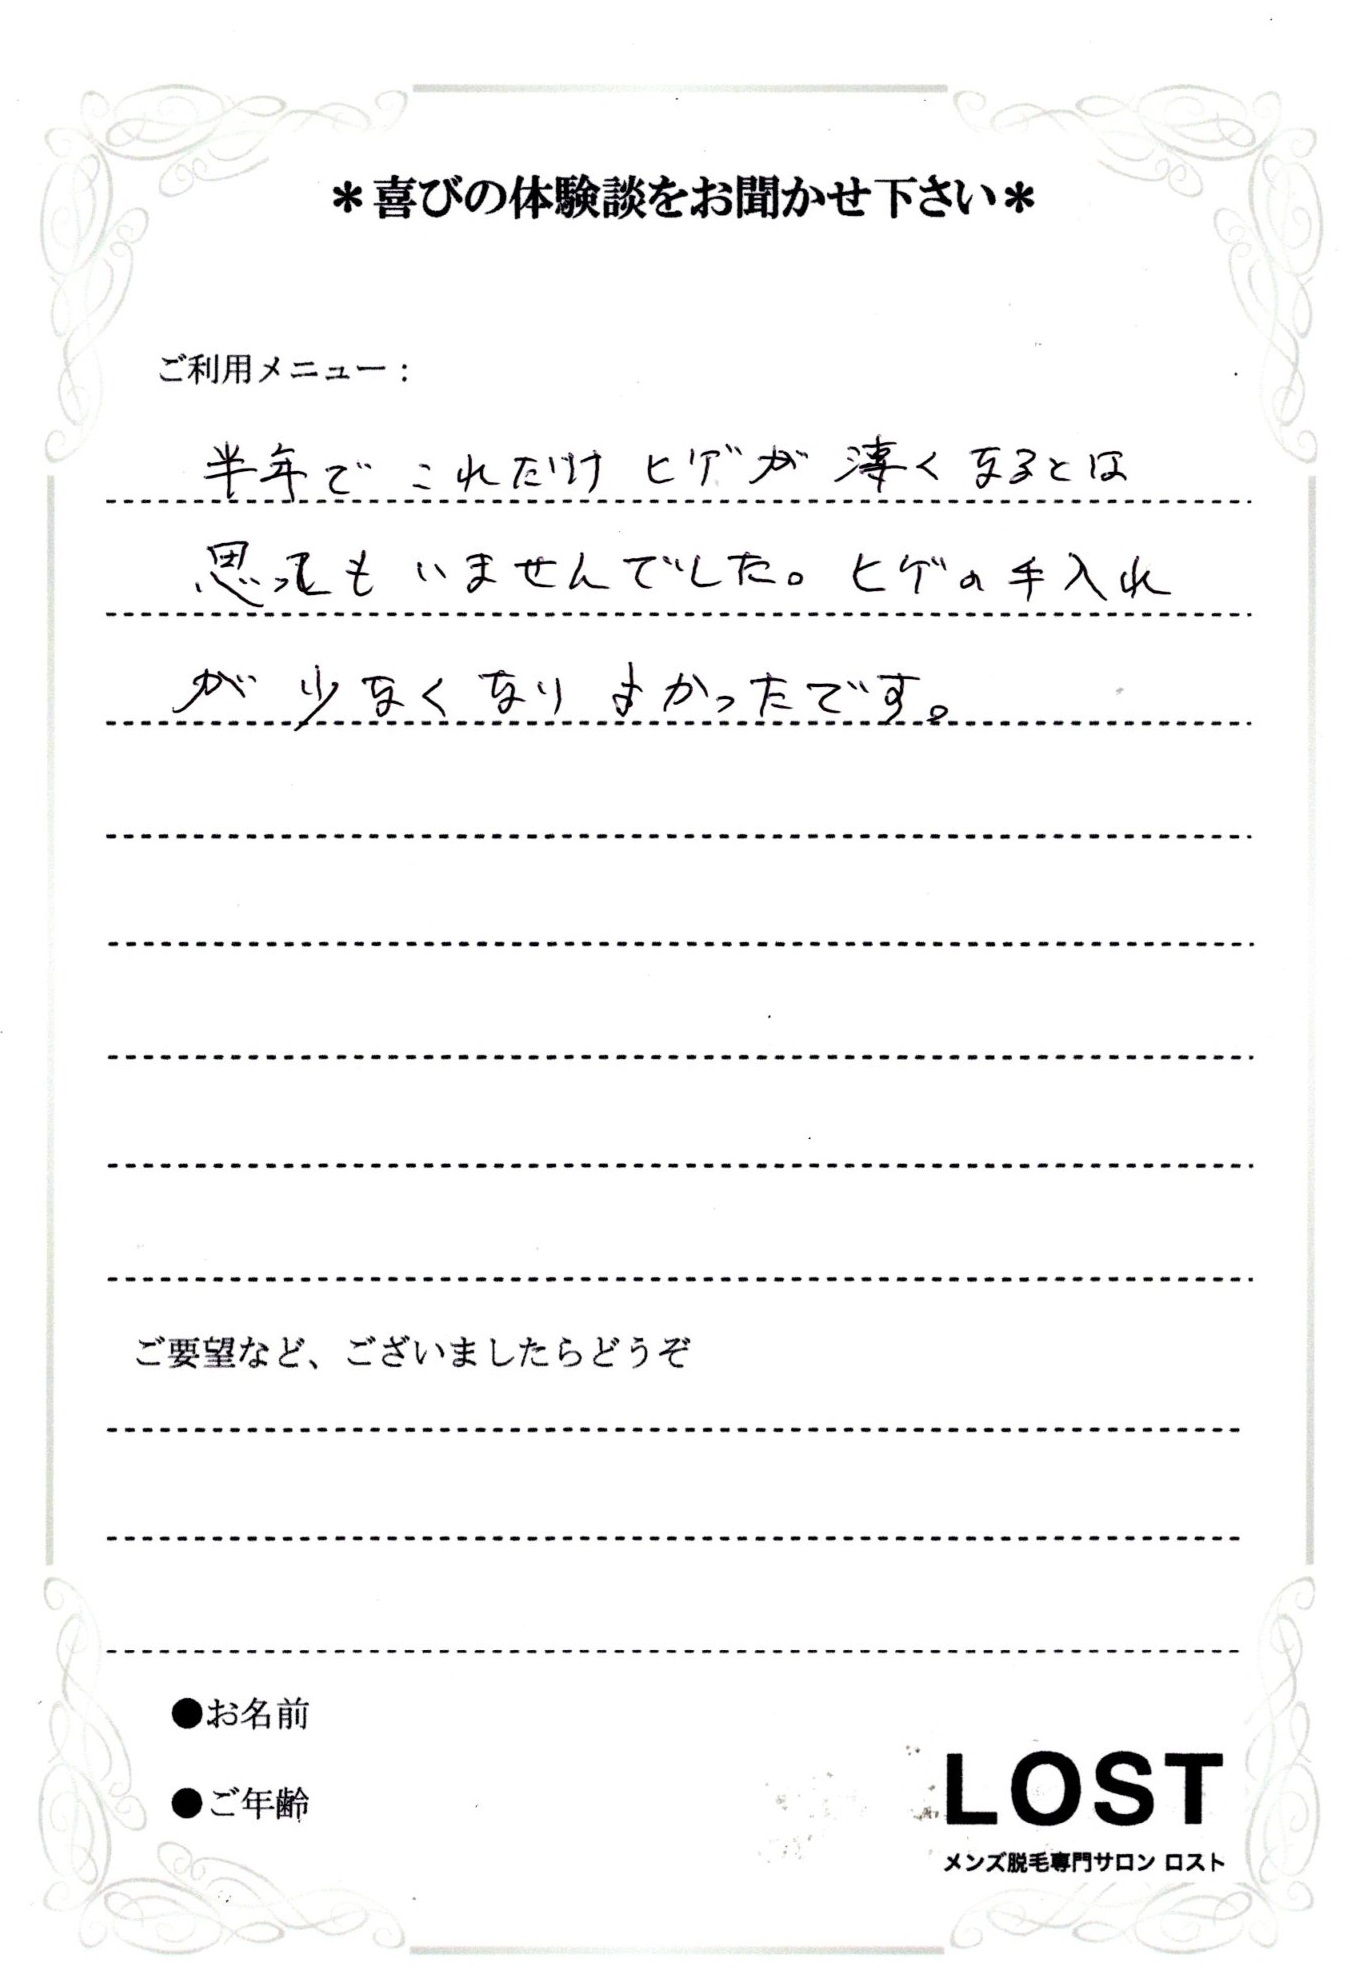 ＊喜びの体験談をお聞かせ下さい＊
ご利用メニュー：
半年で これだけ ヒゲが 薄くなるとは
思ってもいませんでした。ヒゲの手入れ
が 少なくなり よかったです。
ご要望など、ございましたらどうぞ
●お名前
●ご年齢
LOST
メンズ脱毛専門サロン ロスト